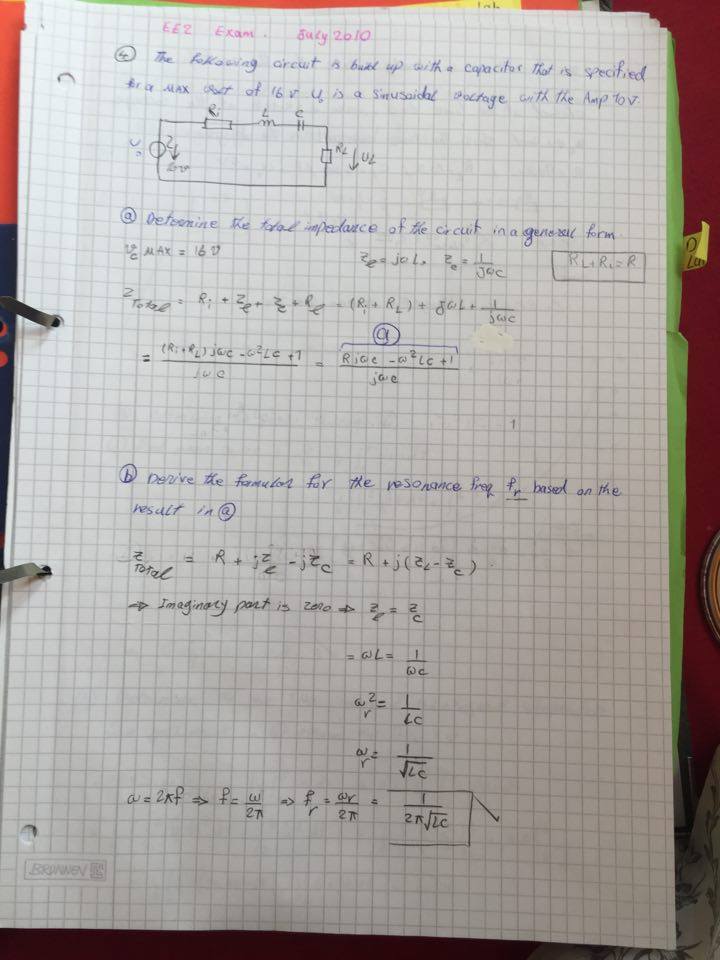 EE2 Exam. July 2010
④ The following circuit is build up with a capacitor that is specified
for a MAX volt of 16 V U₀ is a sinusoidal voltage with the Amp 10V.
Ri L C
U₀ RL UL
10V
ⓐ Determine the total impedance of the circuit in a general form.
Vc MAX = 16 V Zl = jωL, Zc = 1/jωc RL+Ri=R
ZTotal = Ri + Zl + Zc + Rl = (Ri + RL) + jωL + 1/jωc
ⓐ
= (Ri+RL)jωc - ω²Lc +1 / jωc = Rjωc - ω²Lc +1 / jωc
1
ⓑ Derive the formular for the resonance freq fr based on the
result in ⓐ
ZTotal = R + jZl - jZc = R + j(ZL - Zc).
⇒ Imaginary part is zero ⇒ Zl = Zc
= ωL = 1/ωc
ωr² = 1/Lc
ωr = 1/√Lc
ω = 2πf ⇒ f = ω/2π ⇒ fr = ωr/2π = 1/2π√Lc
BRUNNEN